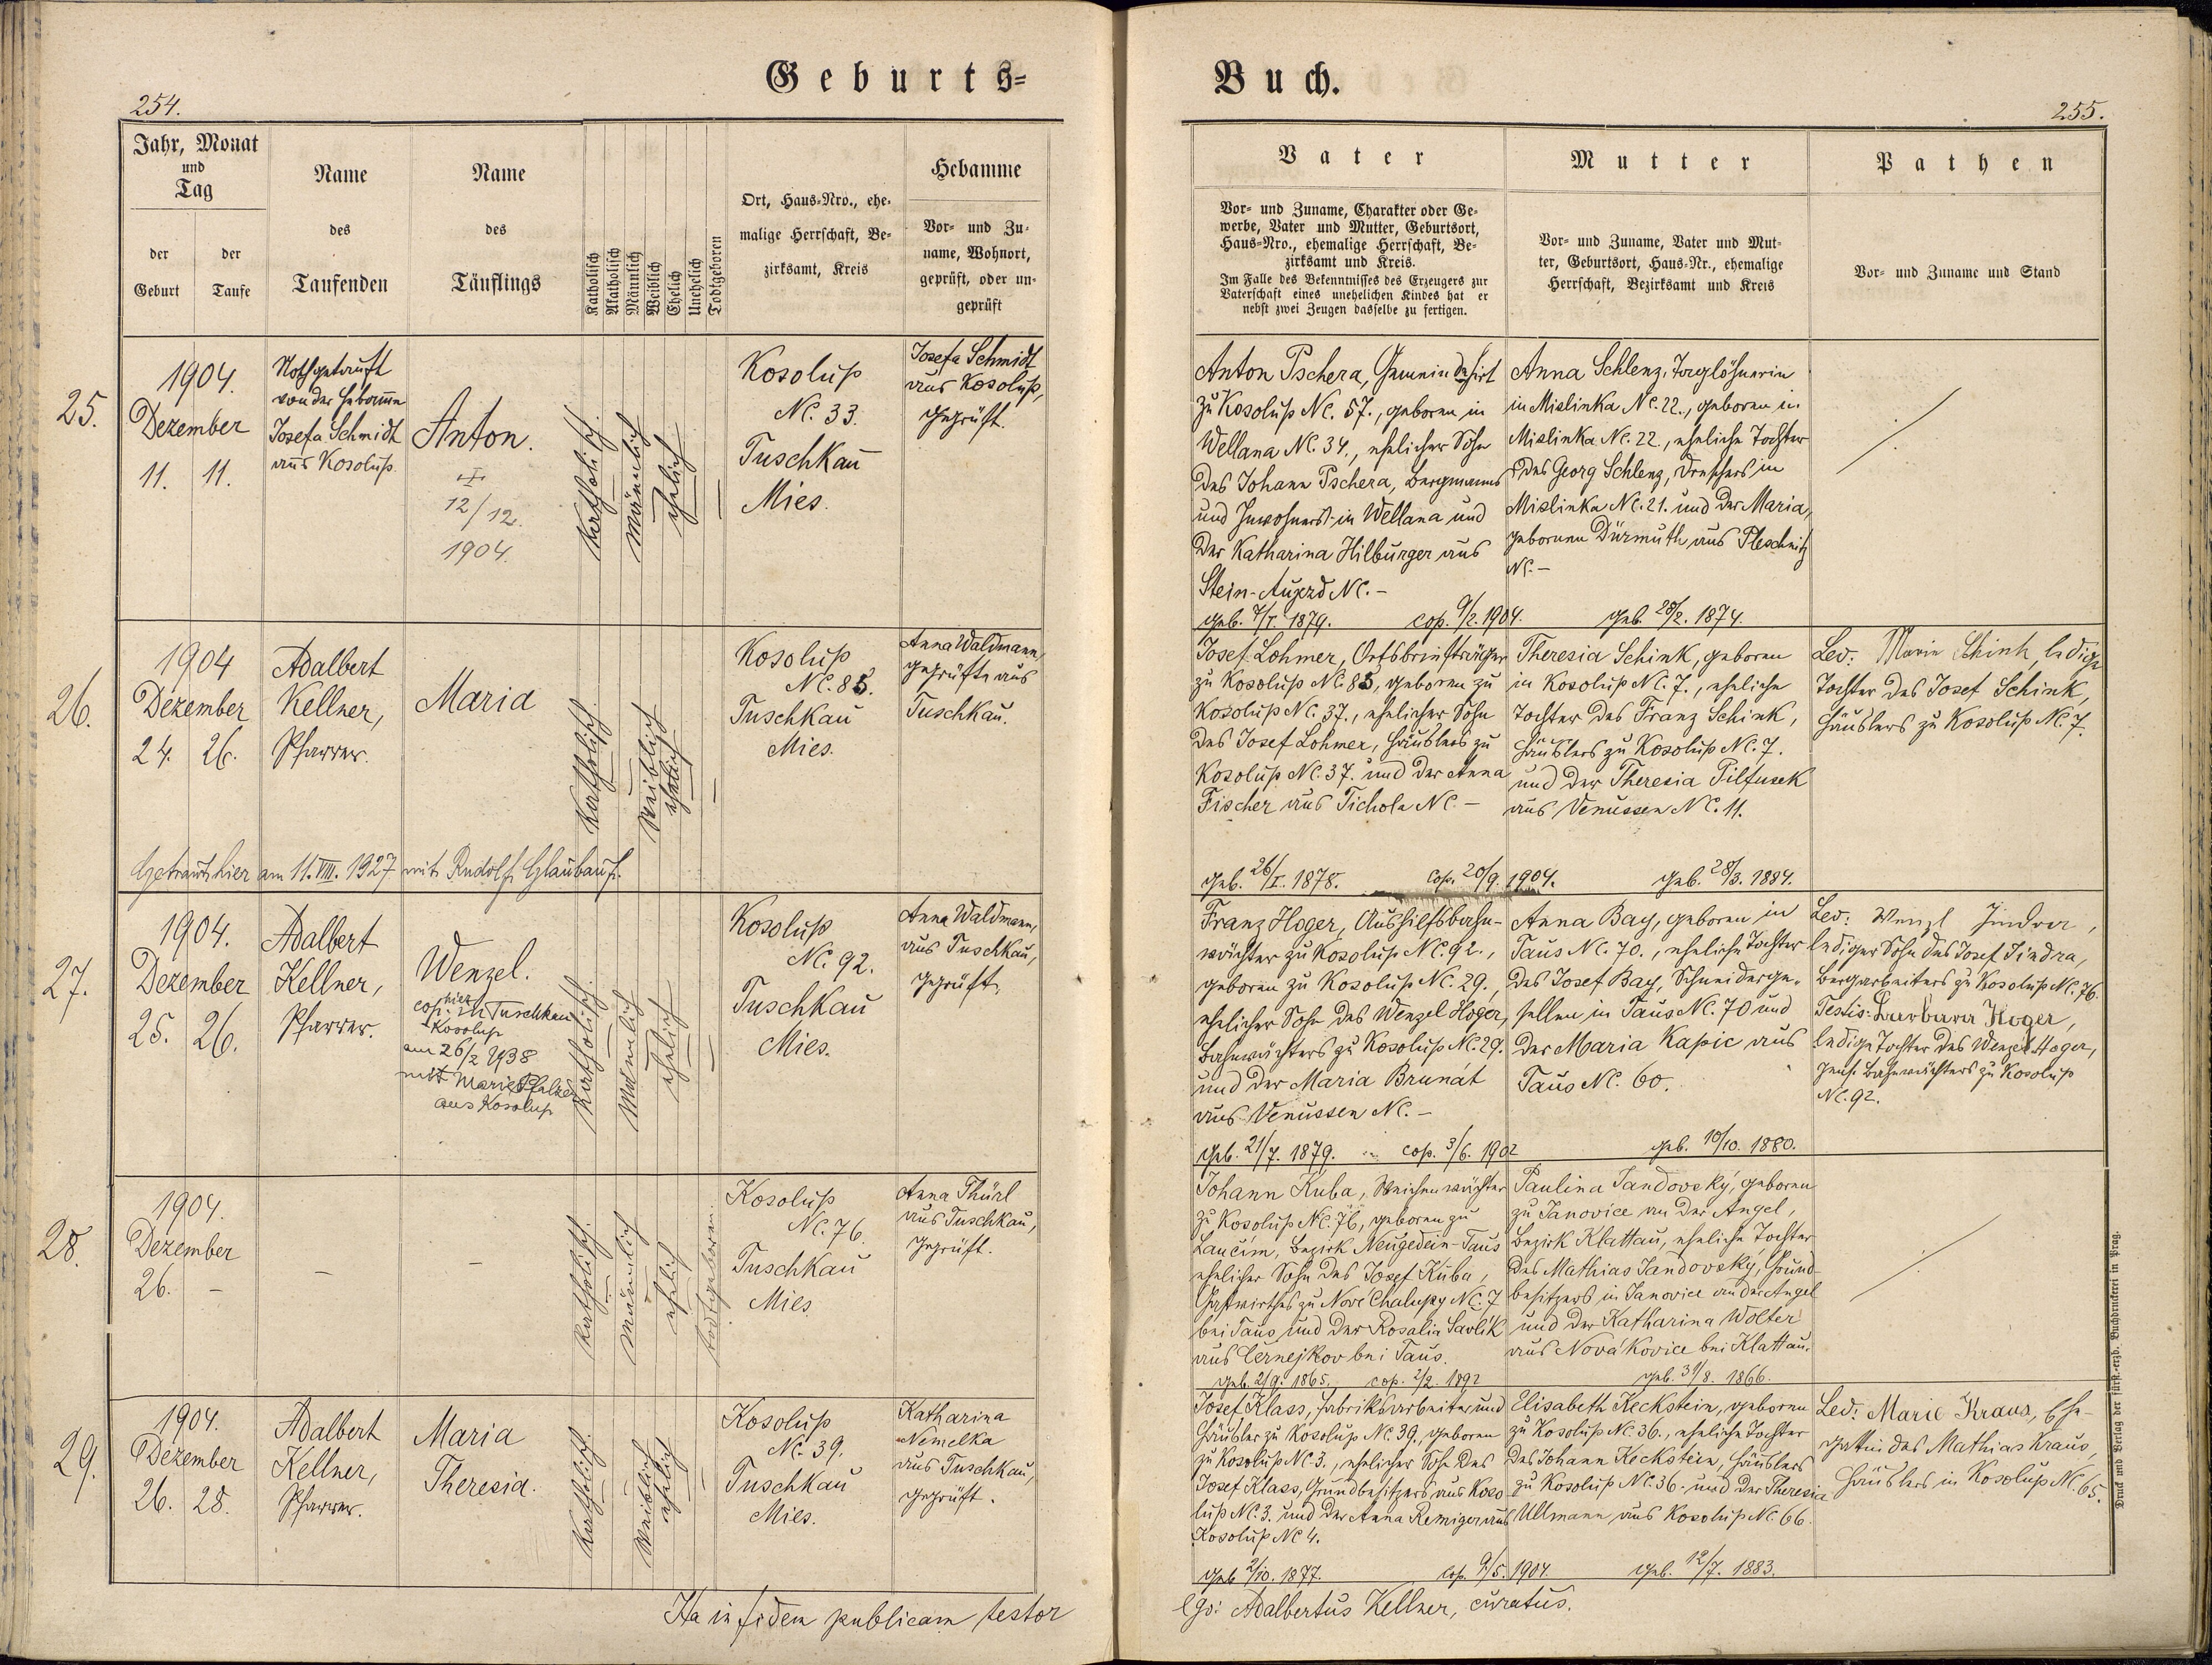 Geburts=
254.
Jahr, Monat
und
Tag
der
Geburt
der
Taufe
Name
des
Taufenden
Name
des
Täuflings
Katholisch
Akatholisch
Männlich
Weiblich
Ehelich
Unehelich
Todtgeboren
Ort, Haus-Nro., ehe-
malige Herrschaft, Be-
zirksamt, Kreis
Hebamme
Vor- und Zu-
name, Wohnort,
geprüft, oder un-
geprüft
25.
1904.
Dezember
11. 11.
Nothgetauft
von der Hebamme
Josefa Schmidt
aus Kosolup.
Anton.
12/12.
1904.
Katholisch.
Männlich
ehelich
Kosolup
NC. 33.
Tuschkau
Mies.
Josefa Schmidt
aus Kosolup,
geprüft.
26.
1904
Dezember
24. 26.
Adalbert
Kellner,
Pfarrer.
Maria
Katholisch.
Weiblich
ehelich
Kosolup
NC. 85.
Tuschkau
Mies.
Anna Waldmann,
geprüfte aus
Tuschkau.
Getraut hier am 11. VIII. 1927 mit Rudolf Glaubauf.
27.
1904.
Dezember
25. 26.
Adalbert
Kellner,
Pfarrer.
Wenzel.
cop. hier in Tuschkau
Kosolup
am 26/2 1938
mit Marie
aus Kosolup
Katholisch.
Männlich
ehelich
Kosolup
NC. 92.
Tuschkau
Mies.
Anna Waldmann,
aus Tuschkau,
geprüft.
28.
1904.
Dezember
26. –
–
–
Katholisch.
Männlich
ehelich
todtgeboren.
Kosolup
NC. 76.
Tuschkau
Mies
Anna Thürl
aus Tuschkau,
geprüft.
29.
1904.
Dezember
26. 28.
Adalbert
Kellner,
Pfarrer.
Maria
Theresia.
Katholisch.
Weiblich
ehelich
Kosolup
NC. 39.
Tuschkau
Mies.
Katharina
Nemelka
aus Tuschkau,
geprüft.
Ita in fidem publicam testor
Buch.
255.
Vater
Vor- und Zuname, Charakter oder Ge-
werbe, Vater und Mutter, Geburtsort,
Haus-Nro., ehemalige Herrschaft, Be-
zirksamt und Kreis.
Im Falle des Bekenntnisses des Erzeugers zur
Vaterschaft eines unehelichen Kindes hat er
nebst zwei Zeugen dasselbe zu fertigen.
Mutter
Vor- und Zuname, Vater und Mut-
ter, Geburtsort, Haus-Nr., ehemalige
Herrschaft, Bezirksamt und Kreis
Pathen
Vor- und Zuname und Stand
Anton Pschera, Gemeindehirt
zu Kosolup NC. 57., geboren in
Wellana NC. 34., ehelicher Sohn
des Johann Pschera, Bergmanns
und Inwohners in Wellana und
der Katharina Hilburger aus
Stein-Aujezd NC. –
geb. 7/1. 1879. cop. 9/2. 1904.
Anna Schlenz, Taglöhnerin
in Mislinka NC. 22., geboren in
Mislinka NC. 22., eheliche Tochter
des Georg Schlenz, Dreschers in
Mislinka NC. 21. und der Maria,
gebornen Dürmuth aus Pleschnitz
NC. –
geb. 28/2. 1874.
Josef Lohmer, Ortsbriefträger
zu Kosolup NC. 85, geboren zu
Kosolup NC. 37., ehelicher Sohn
des Josef Lohmer, Häuslers zu
Kosolup NC. 37. und der Anna
Fischer aus Tichola NC. –
geb. 26/I. 1878. cop. 20/9. 1904.
Theresia Schink, geboren
in Kosolup NC. 7., eheliche
Tochter des Franz Schink,
Häuslers zu Kosolup NC. 7.
und der Theresia Pilfusek
aus Venussen NC. 11.
geb. 28/3. 1884.
Lev: Marie Schink, ledige
Tochter des Josef Schink,
Häuslers zu Kosolup NC. 7.
Franz Hoger, Aushilfsbahn-
wächter zu Kosolup NC. 92.,
geboren zu Kosolup NC. 29.,
ehelicher Sohn des Wenzel Hoger,
Bahnwächters zu Kosolup NC. 29.
und der Maria Brunát
aus Venussen NC. –
geb. 21/7. 1879. cop. 3/6. 1902
Anna Bay, geboren in
Taus NC. 70., eheliche Tochter
des Josef Bay, Schneiderge-
sellen in Taus NC. 70 und
der Maria Kapic aus
Taus NC. 60.
geb. 10/10. 1880.
Lev: Wenzl Jindra,
lediger Sohn des Josef Jindra,
Bergarbeiters zu Kosolup NC. 76.
Testis: Barbara Hoger,
ledige Tochter des Wenzel Hoger,
pens. Bahnwächters zu Kosolup
NC. 92.
Johann Kuba, Weichenwächter
zu Kosolup NC. 76, geboren zu
Laučim, Bezirk Neugedein-Taus
ehelicher Sohn des Josef Kuba,
Gastwirthes zu Nové Chalupy NC. 7
bei Taus und der Rosalia Savlik
aus Černejkov bei Taus.
geb. 2/9. 1865. cop. 2/2. 1892
Paulina Jandovský, geboren
zu Janovice an der Angel,
Bezirk Klattau, eheliche Tochter
des Mathias Jandovský, Grund-
besitzers in Janovice an der Angel
und der Katharina Wolter
aus Novákovice bei Klattau.
geb. 31/8. 1866.
Josef Klass, Fabriksarbeiter und
Häusler zu Kosolup NC. 39., geboren
zu Kosolup NC. 3., ehelicher Sohn des
Josef Klass, Grundbesitzers aus Koso-
lup NC. 3. und der Anna Remiger aus
Kosolup NC 4.
geb. 2/10. 1877. cop. 9/5. 1904.
Elisabeth Keckstein, geboren
zu Kosolup NC. 36., eheliche Tochter
des Johann Keckstein, Häuslers
zu Kosolup NC. 36. und der Theresia
Ullmann aus Kosolup NC. 66.
geb. 12/7. 1883.
Lev: Marie Kraus, Ehe-
gattin des Mathias Kraus,
Häuslers in Kosolup NC. 65.
Adalbertus Kellner, curatus.
Druck und Verlag der fürst.-erzb. Buchdruckerei in Prag.